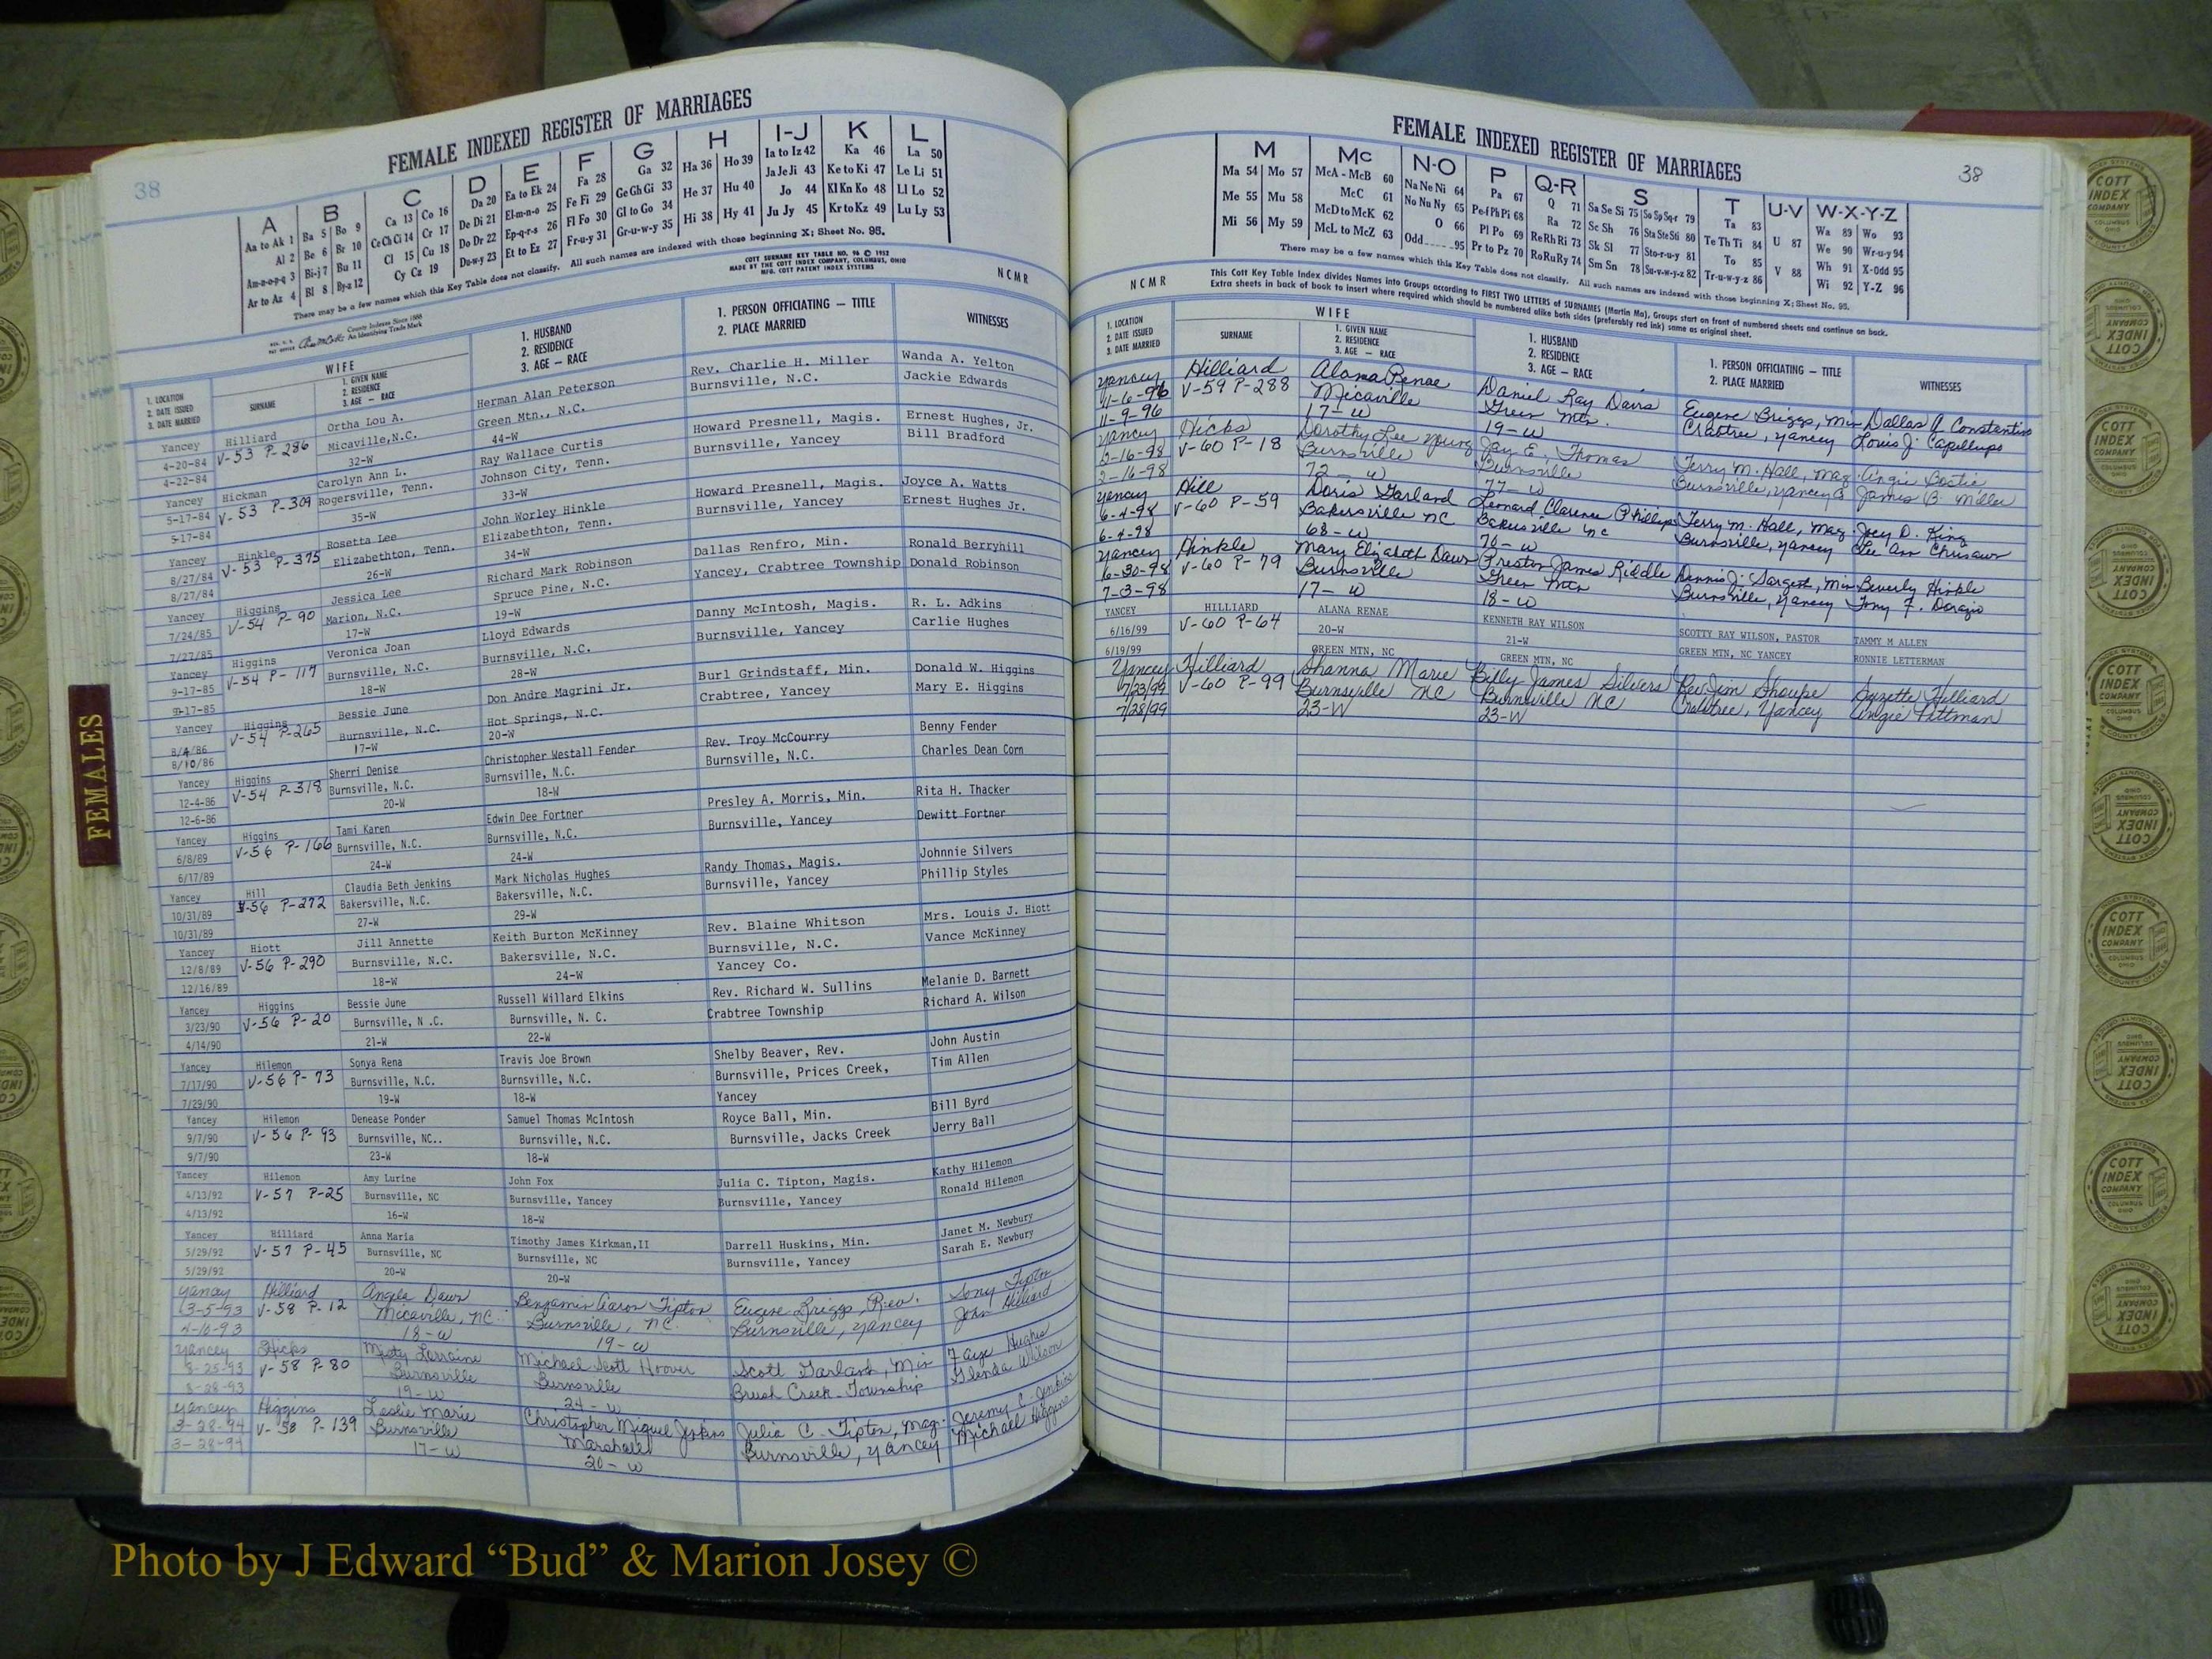 38
FEMALE INDEXED REGISTER OF MARRIAGES
A
Aa to Ak 1
Al 2
Am-n-o-p-q 3
Ar to Az 4
B
Ba 5 Bo 9
Be 6 Br 10
Bi-j 7 Bu 11
Bl 8 By-z 12
C
Ca 13 Co 16
Ce Ch Ci 14 Cr 17
Cl 15 Cu 18
Cy Cz 19
D
Da 20
De Di 21
Do Dr 22
Du-w-y 23
E
Ea to Ek 24
El-m-n-o 25
Ep-q-r-s 26
Et to Ez 27
F
Fa 28
Fe Fi 29
Fl Fo 30
Fr-u-y 31
G
Ga 32
Ge Gh Gi 33
Gl to Go 34
Gr-u-w-y 35
H
Ha 36 Ho 39
He 37 Hu 40
Hi 38 Hy 41
I-J
Ia to Iz 42
Ja Je Ji 43
Jo 44
Ju Jy 45
K
Ka 46
Ke to Ki 47
Kl Kn Ko 48
Kr to Kz 49
L
La 50
Le Li 51
Ll Lo 52
Lu Ly 53
There may be a few names which this Key Table does not classify. All such names are indexed with those beginning X; Sheet No. 95.
County Indexes Since 1888
An Identifying Trade Mark
COTT SURNAME KEY TABLE NO. 96 © 1952
MADE BY THE COTT INDEX COMPANY, COLUMBUS, OHIO
MFG. COTT PATENT INDEX SYSTEMS
NCMR
1. LOCATION
2. DATE ISSUED
3. DATE MARRIED
WIFE
SURNAME
1. GIVEN NAME
2. RESIDENCE
3. AGE — RACE
1. HUSBAND
2. RESIDENCE
3. AGE — RACE
1. PERSON OFFICIATING — TITLE
2. PLACE MARRIED
WITNESSES
Yancey Hilliard Ortha Lou A. Herman Alan Peterson Rev. Charlie H. Miller Wanda A. Yelton
4-20-84 V-53 P-286 Micaville,N.C. Green Mtn., N.C. Burnsville, N.C. Jackie Edwards
4-22-84 32-W 44-W
Yancey Hickman Carolyn Ann L. Ray Wallace Curtis Howard Presnell, Magis. Ernest Hughes, Jr.
5-17-84 V-53 P-309 Rogersville, Tenn. Johnson City, Tenn. Burnsville, Yancey Bill Bradford
5-17-84 35-W 33-W
Yancey Hinkle Rosetta Lee John Worley Hinkle Howard Presnell, Magis. Joyce A. Watts
8/27/84 V-53 P-375 Elizabethton, Tenn. Elizabethton, Tenn. Burnsville, Yancey Ernest Hughes Jr.
8/27/84 26-W 34-W
Yancey Higgins Jessica Lee Richard Mark Robinson Dallas Renfro, Min. Ronald Berryhill
7/24/85 V-54 P-90 Marion, N.C. Spruce Pine, N.C. Yancey, Crabtree Township Donald Robinson
7/27/85 17-W 19-W
Yancey Higgins Veronica Joan Lloyd Edwards Danny McIntosh, Magis. R. L. Adkins
9-17-85 V-54 P-117 Burnsville, N.C. Burnsville, N.C. Burnsville, Yancey Carlie Hughes
9-17-85 18-W 28-W
Yancey Higgins Bessie June Don Andre Magrini Jr. Burl Grindstaff, Min. Donald W. Higgins
8/4/86 V-54 P-265 Burnsville, N.C. Hot Springs, N.C. Crabtree, Yancey Mary E. Higgins
8/10/86 17-W 20-W
Yancey Higgins Sherri Denise Christopher Westall Fender Rev. Troy McCourry Benny Fender
12-4-86 V-54 P-318 Burnsville, N.C. Burnsville, N.C. Burnsville, N.C. Charles Dean Corn
12-6-86 20-W 18-W
Yancey Higgins Tami Karen Edwin Dee Fortner Presley A. Morris, Min. Rita H. Thacker
6/8/89 V-56 P-166 Burnsville, N.C. Burnsville, N.C. Burnsville, Yancey Dewitt Fortner
6/17/89 24-W 24-W
Yancey Hill Claudia Beth Jenkins Mark Nicholas Hughes Randy Thomas, Magis. Johnnie Silvers
10/31/89 V-56 P-272 Bakersville, N.C. Bakersville, N.C. Burnsville, Yancey Phillip Styles
10/31/89 27-W 29-W
Yancey Hiott Jill Annette Keith Burton McKinney Rev. Blaine Whitson Mrs. Louis J. Hiott
12/8/89 V-56 P-290 Burnsville, N.C. Bakersville, N.C. Burnsville, N.C. Vance McKinney
12/16/89 18-W 24-W Yancey Co.
Yancey Higgins Bessie June Russell Willard Elkins Rev. Richard W. Sullins Melanie D. Barnett
3/23/90 V-56 P-20 Burnsville, N.C. Burnsville, N. C. Crabtree Township Richard A. Wilson
4/14/90 21-W 22-W
Yancey Hilemon Sonya Rena Travis Joe Brown Shelby Beaver, Rev. John Austin
7/17/90 V-56 P-73 Burnsville, N.C. Burnsville, N.C. Burnsville, Prices Creek, Tim Allen
7/29/90 19-W 18-W Yancey
Yancey Hilemon Denease Ponder Samuel Thomas McIntosh Royce Ball, Min. Bill Byrd
9/7/90 V-56 P-93 Burnsville, NC.. Burnsville, N.C. Burnsville, Jacks Creek Jerry Ball
9/7/90 23-W 18-W
Yancey Hilemon Amy Lurine John Fox Julia C. Tipton, Magis. Kathy Hilemon
4/13/92 V-57 P-25 Burnsville, NC Burnsville, Yancey Burnsville, Yancey Ronald Hilemon
4/13/92 16-W 18-W
Yancey Hilliard Anna Maria Timothy James Kirkman,II Darrell Huskins, Min. Janet M. Newbury
5/29/92 V-57 P-45 Burnsville, NC Burnsville, NC Burnsville, Yancey Sarah E. Newbury
5/29/92 20-W 20-W
Yancey Hilliard Angela Dawn Benjamin Aaron Tipton Eugene Briggs, Rev. Tony Tipton
3-5-93 V-58 P-12 Micaville, NC. Burnsville, NC. Burnsville, Yancey John Hilliard
4-10-93 18-W 19-W
Yancey Hicks Misty Lorraine Michael Scott Hoover Scott Garland, Min Faye Hughes
8-25-93 V-58 P-80 Burnsville Burnsville Brush Creek Township Glenda Wilson
8-28-93 19-W 24-W
Yancey Higgins Leslie Marie Christopher Miguel Jenkins Julia C. Tipton, Mag. Jeremy C. Jenkins
3-28-94 V-58 P-139 Burnsville Marshall Burnsville, Yancey Michael Higgins
3-28-94 17-W 20-W
FEMALE INDEXED REGISTER OF MARRIAGES
38
M
Ma 54 Mo 57
Me 55 Mu 58
Mi 56 My 59
Mc
McA - McB 60
McC 61
McD to McK 62
McL to McZ 63
N-O
Na Ne Ni 64
No Nu Ny 65
O 66
Odd 95
P
Pa 67
Pe-f Ph Pi 68
Pl Po 69
Pr to Pz 70
Q-R
Q 71
Ra 72
Re Rh Ri 73
Ro Ru Ry 74
S
Sa Se Si 75 So Sp Sq-r 79
Sc Sh 76 Sta Ste Sti 80
Sk Sl 77 Sto-r-u-y 81
Sm Sn 78 Su-v-w-y-z 82
T
Ta 83
Te Th Ti 84
To 85
Tr-u-w-y-z 86
U-V
U 87
V 88
W-X-Y-Z
Wa 89 Wo 93
We 90 Wr-u-y 94
Wh 91 X-Odd 95
Wi 92 Y-Z 96
There may be a few names which this Key Table does not classify. All such names are indexed with those beginning X; Sheet No. 95.
NCMR
This Cott Key Table Index divides Names into Groups according to FIRST TWO LETTERS of SURNAMES (Martin Ma), Groups start on front of numbered sheets and continue on back.
Extra sheets in back of book to insert where required which should be numbered alike both sides (preferably red ink) same as original sheet.
1. LOCATION
2. DATE ISSUED
3. DATE MARRIED
WIFE
SURNAME
1. GIVEN NAME
2. RESIDENCE
3. AGE — RACE
1. HUSBAND
2. RESIDENCE
3. AGE — RACE
1. PERSON OFFICIATING — TITLE
2. PLACE MARRIED
WITNESSES
Yancey Hilliard Alana Renae Daniel Ray Davis Eugene Briggs, Min Dallas A Constantino
11-6-96 V-59 P-288 Micaville Green Mtn. Crabtree, Yancey Louis J. Capellupo
11-9-96 17-W 19-W
Yancey Hicks Dorothy Lee Young Jay E. Thomas Terry M. Hall, Mag. Angie Bostic
2-16-98 V-60 P-18 Burnsville Burnsville Burnsville, Yancey James B. Miller
2-16-98 72-W 77-W
Yancey Hill Doris Garland Leonard Clarence Phillips Terry M. Hall, Mag Joey D. King
6-4-98 V-60 P-59 Bakersville NC Bakersville NC Burnsville, Yancey Lee Ann Chrisawn
6-4-98 68-W 70-W
Yancey Hinkle Mary Elizabeth Dawn Preston James Riddle Dennis J. Sargent, Min Beverly Hinkle
6-30-98 V-60 P-79 Burnsville Green Mtn Burnsville, Yancey Tony F. Dorazio
7-3-98 17-W 18-W
YANCEY HILLIARD ALANA RENAE KENNETH RAY WILSON SCOTTY RAY WILSON, PASTOR TAMMY M ALLEN
6/16/99 V-60 P-64 20-W 21-W GREEN MTN, NC YANCEY RONNIE LETTERMAN
6/19/99 GREEN MTN, NC GREEN MTN, NC
Yancey Hilliard Shanna Marie Billy James Silvers Rev Jim Shoupe Suzette Hilliard
7/23/99 V-60 P-99 Burnsville NC Burnsville NC Crabtree, Yancey Angie Pittman
7/28/99 23-W 23-W
FEMALES
COTT INDEX COMPANY
COLUMBUS OHIO
Photo by J Edward “Bud” & Marion Josey ©